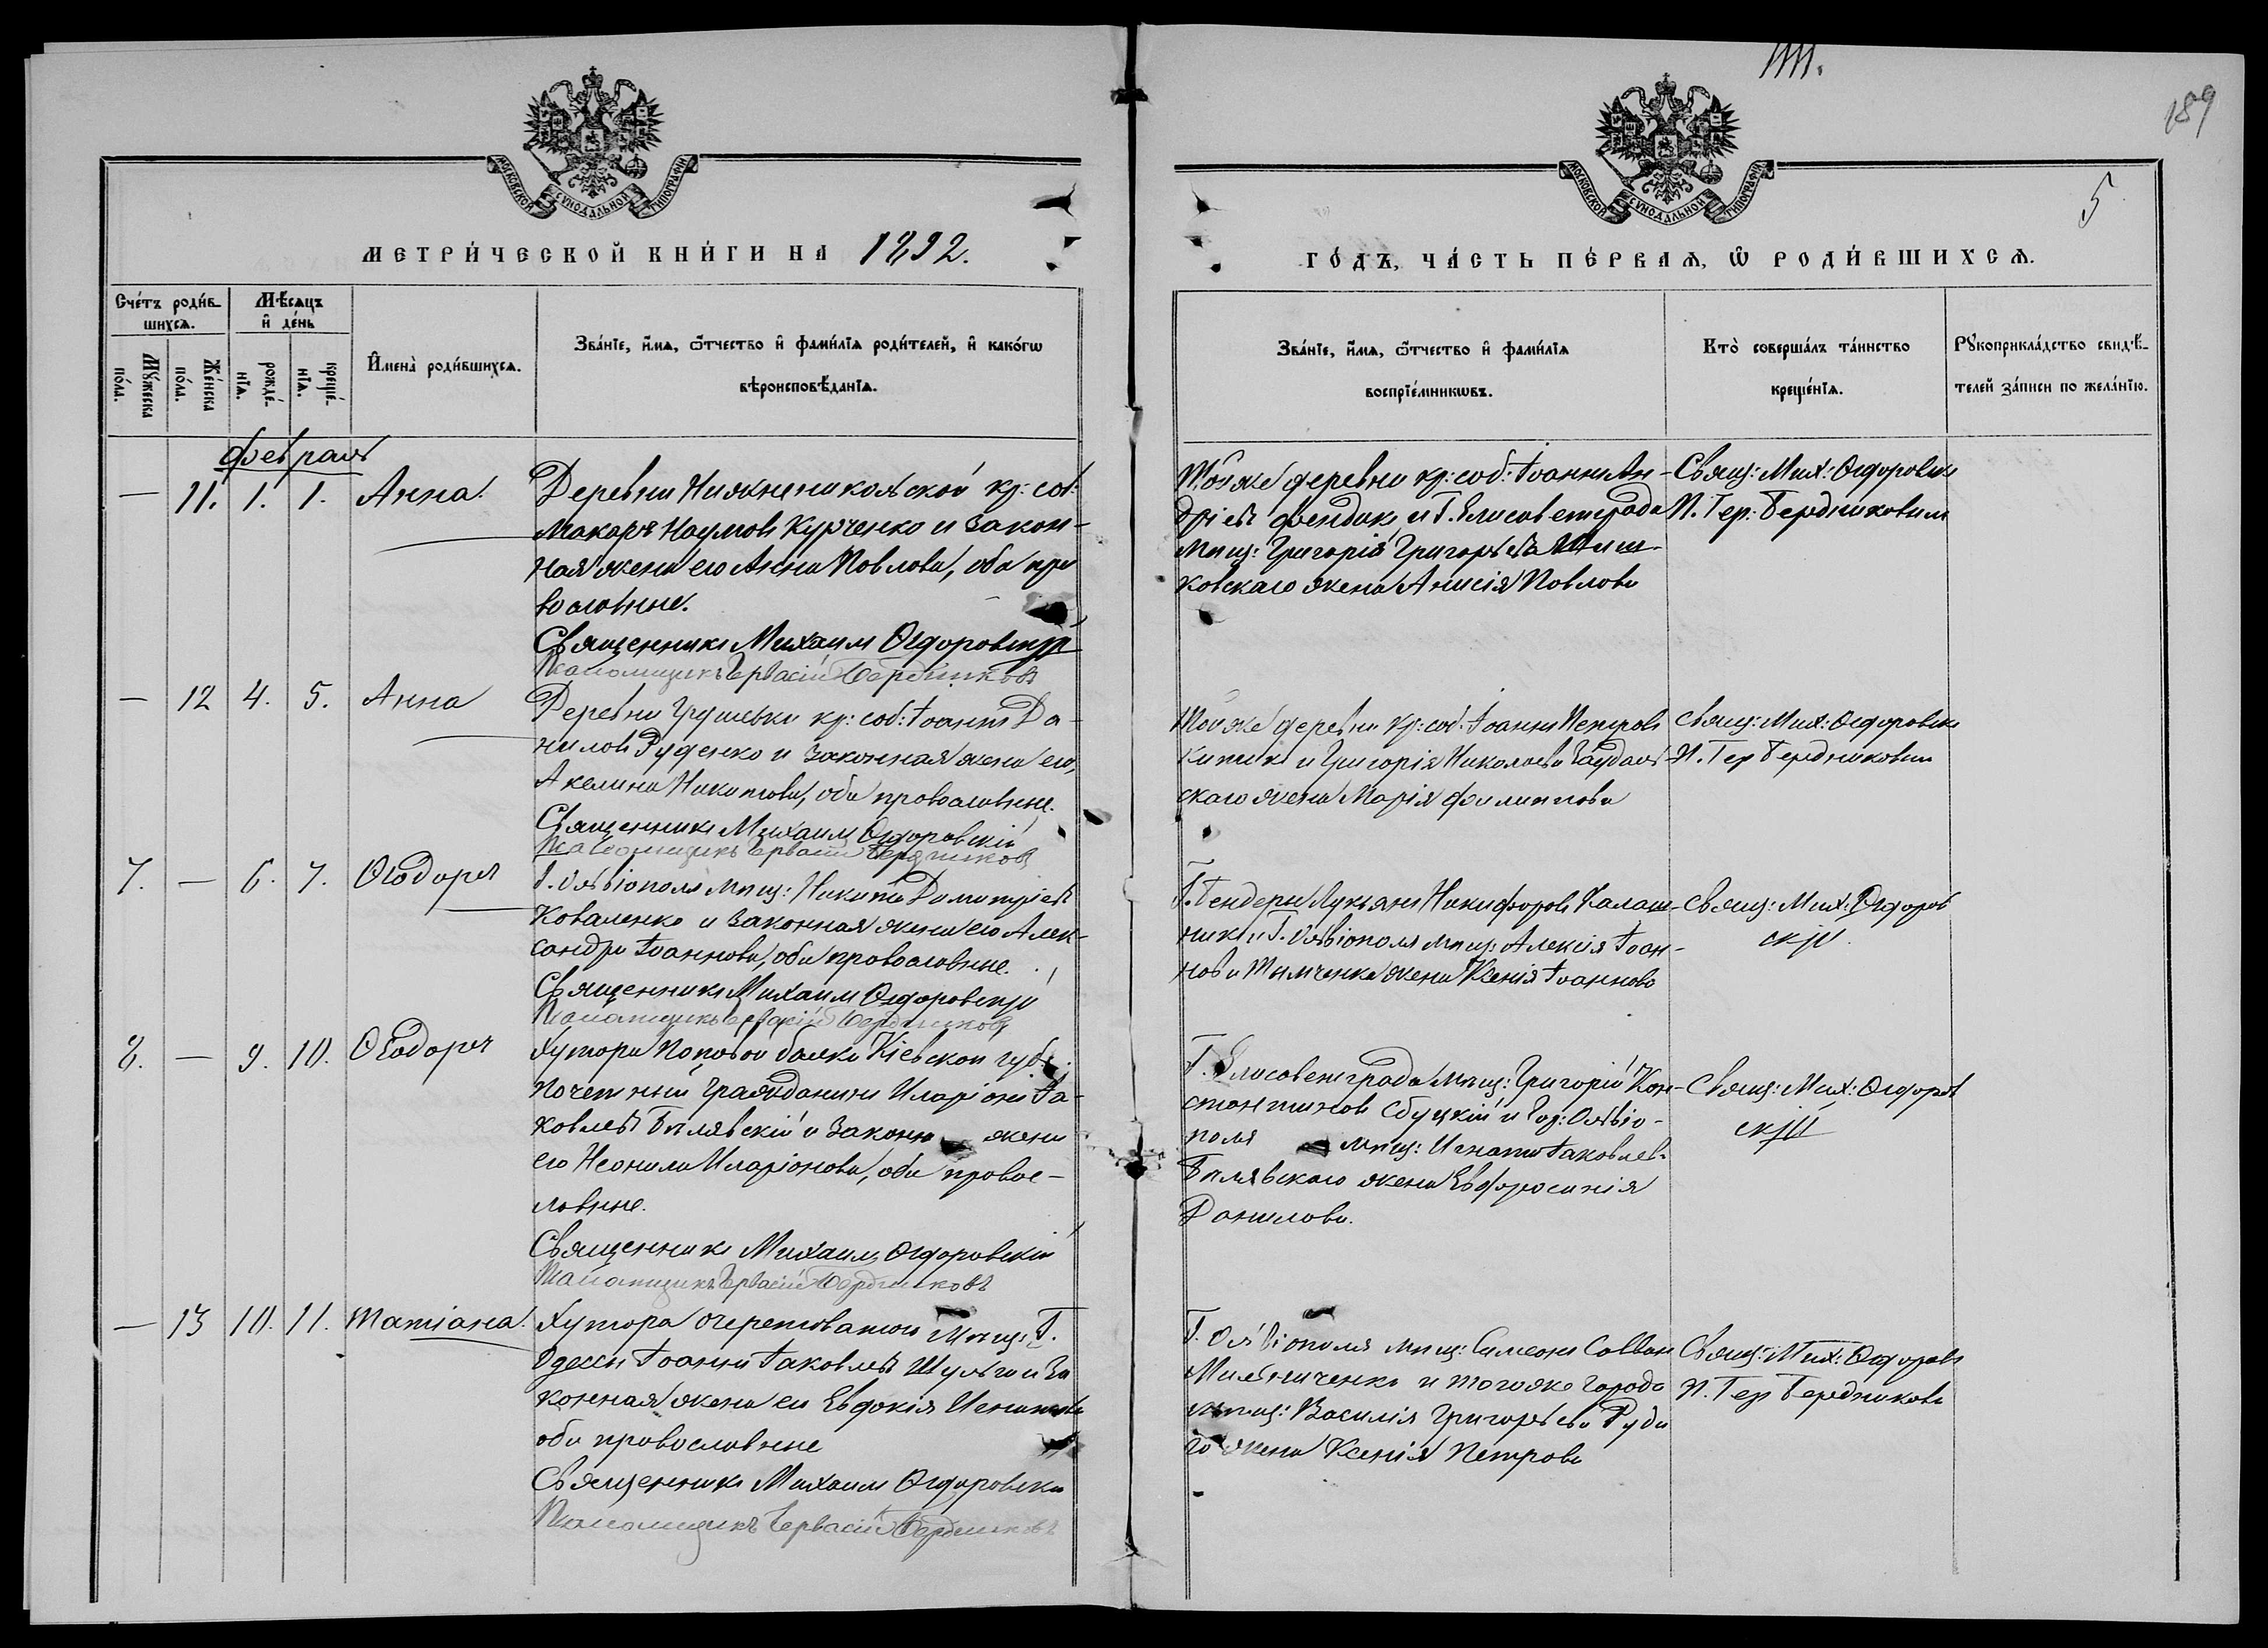 189
5
МОСКОВСКОЙ СУНОДАЛЬНОЙ ТИПОГРАФІИ
МОСКОВСКОЙ СУНОДАЛЬНОЙ ТИПОГРАФІИ
МЕТРИ́ЧЕСКОЙ КНИ́ГИ НА 1892.
ГО́ДЪ, ЧА́СТЬ ПЕ́РВАѦ, Ѡ РОДИ́ВШИХСѦ.
Сче́тъ роди́в-
шихсѧ.
Мѣ́сѧцъ
и де́нь
Му́жеска
по́ла.
Же́нска
по́ла.
рожде́-
нїѧ.
креще́-
нїѧ.
Имена̀ роди́вшихсѧ.
Зва́нїе, и́мѧ, ѻ́тчество и фами́лїѧ роди́телей, и како́гѡ
вѣроисповѣ́данїѧ.
Зва́нїе, и́мѧ, ѻ́тчество и фами́лїѧ
воспрїе́мникѡвъ.
Кто̀ соверша́лъ та́инство
креще́нїѧ.
Рꙋкоприкла́дство свидѣ́-
телей за́писи по жела́нїю.
Февраль
— 11. 1. 1. Анна.
Деревни Нижненикольской кр: соб:
Макаръ Наумовъ Курченко и закон-
ная жена его Анна Павлова, оба пра
вославные.
Священникъ Михаилъ Ѳедоровскій
Псаломщикъ Гервасій Бердниковъ
Тойже деревни кр: соб: Іоаннъ Ан-
дріевъ Фендикъ и Г. Елисаветграда
мѣщ: Григорія Григорьева
ковскаго жена Анисія Павлова
Свящ: Мих: Ѳедоровскій
П. Гер: Бердниковъ
— 12 4. 5. Анна
Деревни Грушевки кр: соб: Іоаннъ Да-
ниловъ Руденко и законная жена его,
Акелина Никитова, оба православные.
Священникъ Михаилъ Ѳедоровскій
Псаломщикъ Гервасій Бердниковъ
Тойже деревни кр: соб: Іоаннъ Петровъ
и Григорія Николаева
скаго жена Марія Филиппова
Свящ: Мих: Ѳедоровскій
П. Гер Бердниковъ
7. — 6. 7. Ѳеодоръ
Г. Ольвіополя мѣщ: Никита Димитріевъ
Коваленко и законная жена его Алек-
сандра Іоаннова, оба православные.
Священникъ Михаилъ Ѳедоровскій
Псаломщикъ Гервасій Бердниковъ
Г. Бендеръ Лукьянъ Никифоровъ Калаш-
никъ и Г. Ольвіополя мѣщ: Алексія Іоан-
нова Тимченка жена Ксенія Іоаннова
Свящ: Мих: Ѳедоров
скій.
8. — 9. 10. Ѳеодоръ
Хутора Поповой балки Кіевской губ:
почетный гражданинъ Иларіонъ Іа-
ковлевъ Бѣлявскій и законн жена
его Неонила Иларіонова, оба правос-
лавные.
Священникъ Михаилъ Ѳедоровскій
Псаломщикъ Гервасій Бердниковъ
Г. Елисаветграда мѣщ: Григорій Кон-
стантиновъ Сбуцкій и гор: Ольвіо-
поля мѣщ: Игнатія Іаковлев.
Бѣлявскаго жена Евфросинія
Данилова.
Свящ: Мих: Ѳедоров
скій
— 13 10. 11. Татіана.
Хутора Очеретоватого мѣщ: Г.
Одессы Іоаннъ Іаковлевъ Шульга и за
конная жена его Евдокія Игнатова
оба православные
Священникъ Михаилъ Ѳедоровскій
Псаломщикъ Гервасій Бердниковъ
Г. Ольвіополя мѣщ: Симеонъ Саввин
Мильниченко и тогоже города
мѣщ: Василія Григорьева Руда
го жена Ксенія Петрова
Свящ: Мих: Ѳедоровъ
П. Гер Бердниковъ